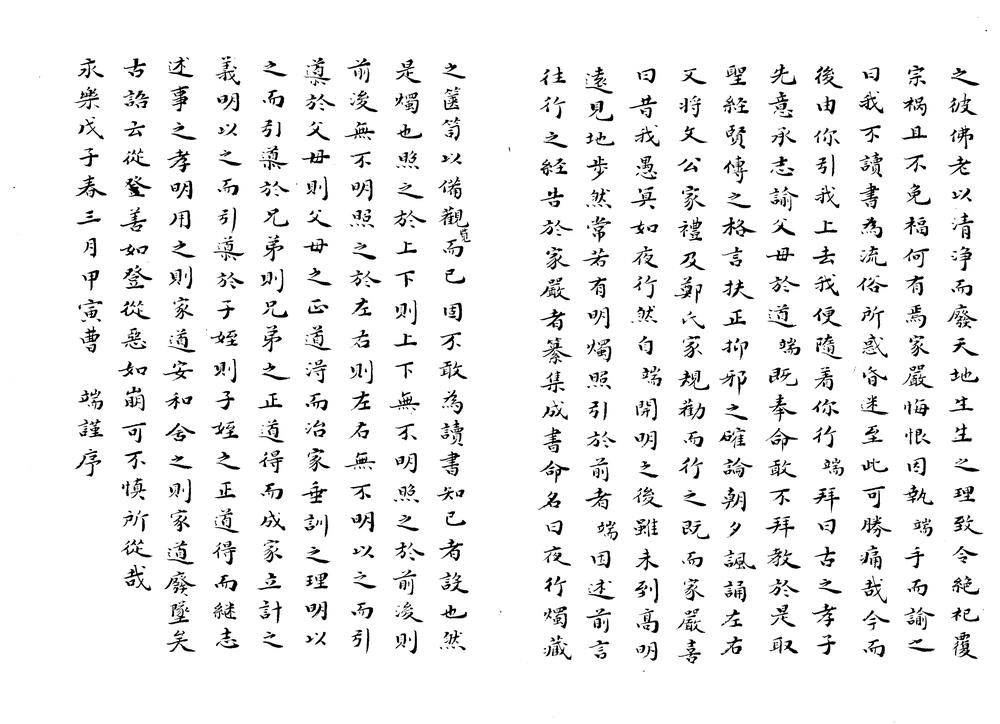 之彼佛老以清淨而廢天地生生之理致令絶祀覆
宗禍且不免福何有焉家嚴悔恨因執端手而諭之
曰我不讀書為流俗所惑昏迷至此可勝痛哉今而
後由你引我上去我便隨着你行端拜曰古之孝子
先意承志諭父母於道端既奉命敢不拜教於是取
聖經賢傳之格言扶正抑邪之確論朝夕諷誦左右
又將文公家禮及鄭氏家規勸而行之既而家嚴喜
曰昔我愚冥如夜行然自端開明之後雖未到高明
遠見地步然常若有明燭照引於前者端因述前言
往行之經告於家嚴者纂集成書命名曰夜行燭藏
之篋笥以備觀覽而已固不敢為讀書知已者設也然
是燭也照之於上下則上下無不明照之於前後則
前後無不明照之於左右則左右無不明以之而引
導於父母則父母之正道得而治家垂訓之理明以
之而引導於兄弟則兄弟之正道得而成家立計之
義明以之而引導於子姪則子姪之正道得而継志
述事之孝明用之則家道安和舍之則家道廢墜矣
古語云從善如登從惡如崩可不慎所從哉
永樂戊子春三月甲寅曹　端謹序